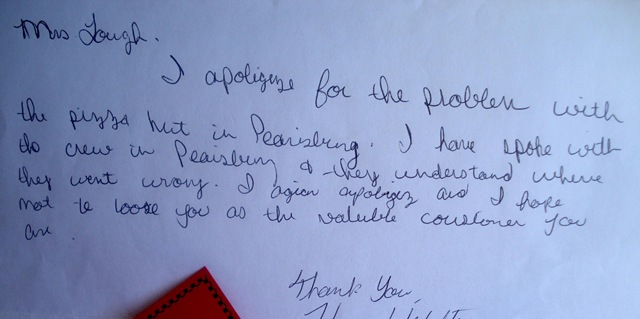 Mrs Lough.
I apoligize for the problem with
the pizza hut in Pearisburg. I have spoke with
the crew in Pearisburg & they understand where
they went wrong. I agian apologize and I hope
not to loose you as the valuble coustomer you
are.
Thank You,